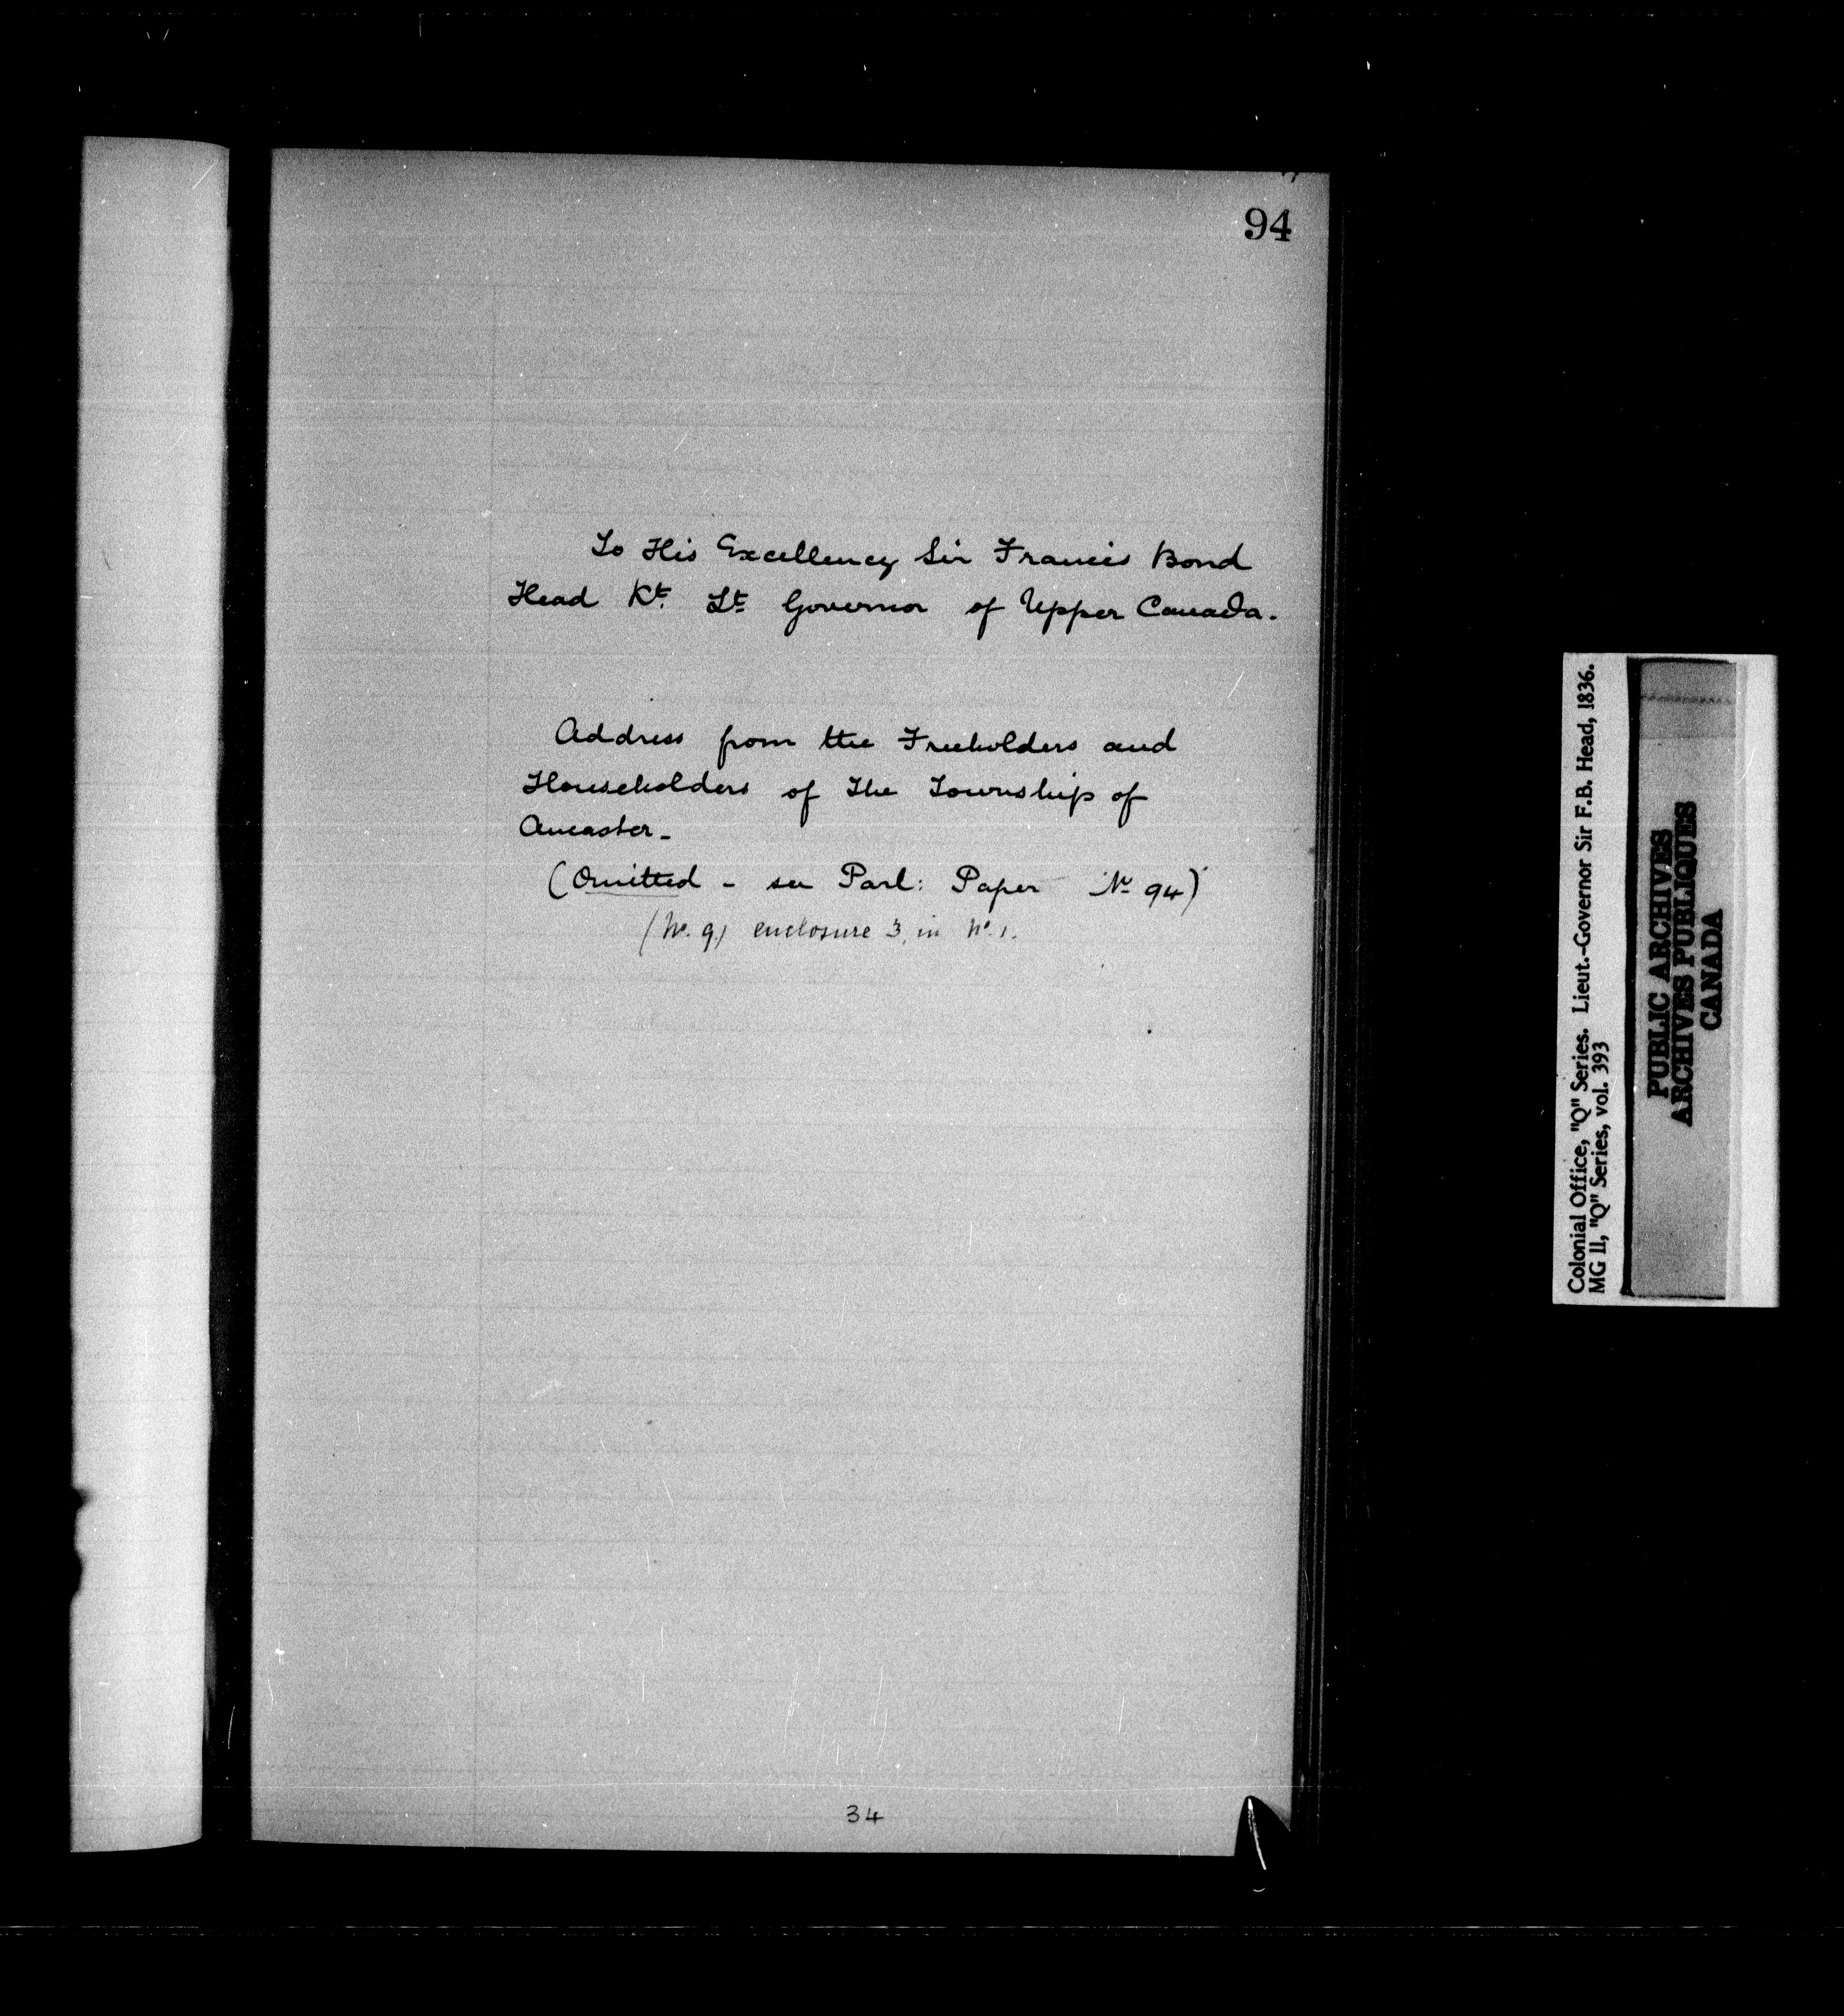 94
To His Excellency Sir Francis Bond
Head Kt. Lt. Governor of Upper Canada.
Address from the Freeholders and
Householders of The Township of
Ancaster-
(Omitted - see Parl: Paper No 94)
(No. 9) enclosure 3, in No. 1.
34
Colonial Office, "Q" Series. Lieut.-Governor Sir F.B. Head, 1836.
MG 11, "Q" Series, vol. 393
PUBLIC ARCHIVES
ARCHIVES PUBLIQUES
CANADA